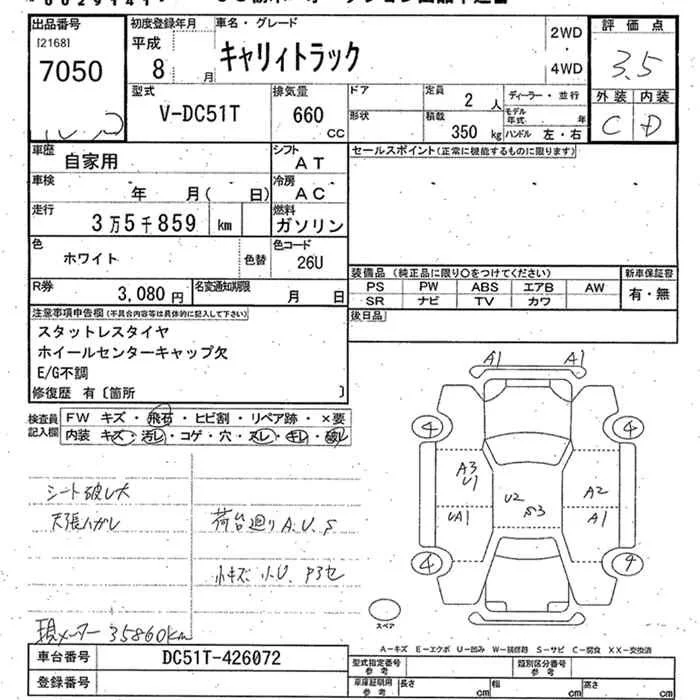 出品番号
[2168]
7050
初度登録年月
平成
8 月
車名・グレード
キャリィトラック
2WD
・
4WD
評価点
3.5
外装 内装
C D
型式
V-DC51T
排気量
660
cc
ドア
形状
定員
2 人
積載
350 kg
ディーラー・並行
モデル年式 年
ハンドル 左・右
車歴
自家用
シフト
AT
車検
年 月( 日)
冷房
AC
走行
3万5千859 km
燃料
ガソリン
色
ホワイト
色替
色コード
26U
R券
3,080円
名変通知期限
月 日
セールスポイント(正常に機能するものに限ります)
装備品 (純正品に限り○をつけてください)
PS PW ABS エアB AW
SR ナビ TV カワ
新車保証書
有・無
後日品
注意事項申告欄(不具合内容等は具体的に記入して下さい)
スタットレスタイヤ
ホイールセンターキャップ欠
E/G不調
修復歴 有〔箇所 〕
検査員記入欄
FW キズ・飛石・ヒビ割・リペア跡・×要
内装 キズ・汚レ・コゲ・穴・スレ・キレ・破レ
シート破レ大
天張ハガレ
荷台廻りA.U.S
小キズ 小U.
現メーター 35860km
A1 A1
4 4
A3
U1
U2
S3
A2
UA1
A1
4
スペア
A-キズ E-エクボ U-凹み W-装修跡 S-サビ C-腐食 XX-交換済
車台番号
DC51T-426072
登録番号
型式指定番号
参考
類別区分番号
参考
車庫証明用
参考
長さ cm
幅 cm
高さ cm